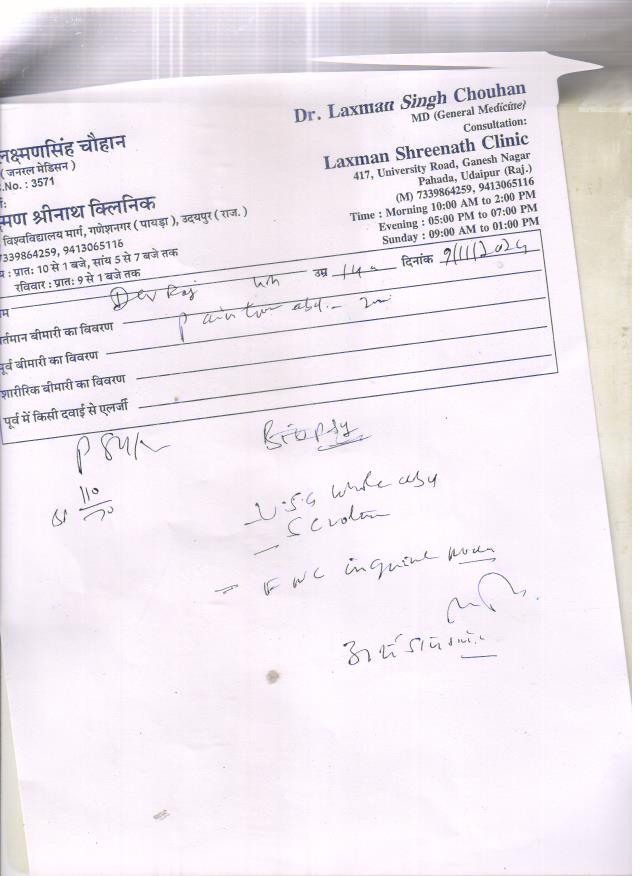 लक्ष्मणसिंह चौहान
( जनरल मेडिसन )
.No. : 3571
मण श्रीनाथ क्लिनिक
विश्वविद्यालय मार्ग, गणेशनगर ( पायड़ा ), उदयपुर ( राज. )
7339864259, 9413065116
: प्रात: 10 से 1 बजे, सांय 5 से 7 बजे तक
रविवार : प्रात: 9 से 1 बजे तक
Dr. Laxman Singh Chouhan
MD (General Medicine)
Consultation:
Laxman Shreenath Clinic
417, University Road, Ganesh Nagar
Pahada, Udaipur (Raj.)
(M) 7339864259, 9413065116
Time : Morning 10:00 AM to 2:00 PM
Evening : 05:00 PM to 07:00 PM
Sunday : 09:00 AM to 01:00 PM
Dev Raj उम्र दिनांक 9/11/2024
र्तमान बीमारी का विवरण Pain
पूर्व बीमारी का विवरण
शारीरिक बीमारी का विवरण
पूर्व में किसी दवाई से एलर्जी
P 84/
Biopsy
110
70
U.S.G whole abd
Scrotum
FNC inguinal node